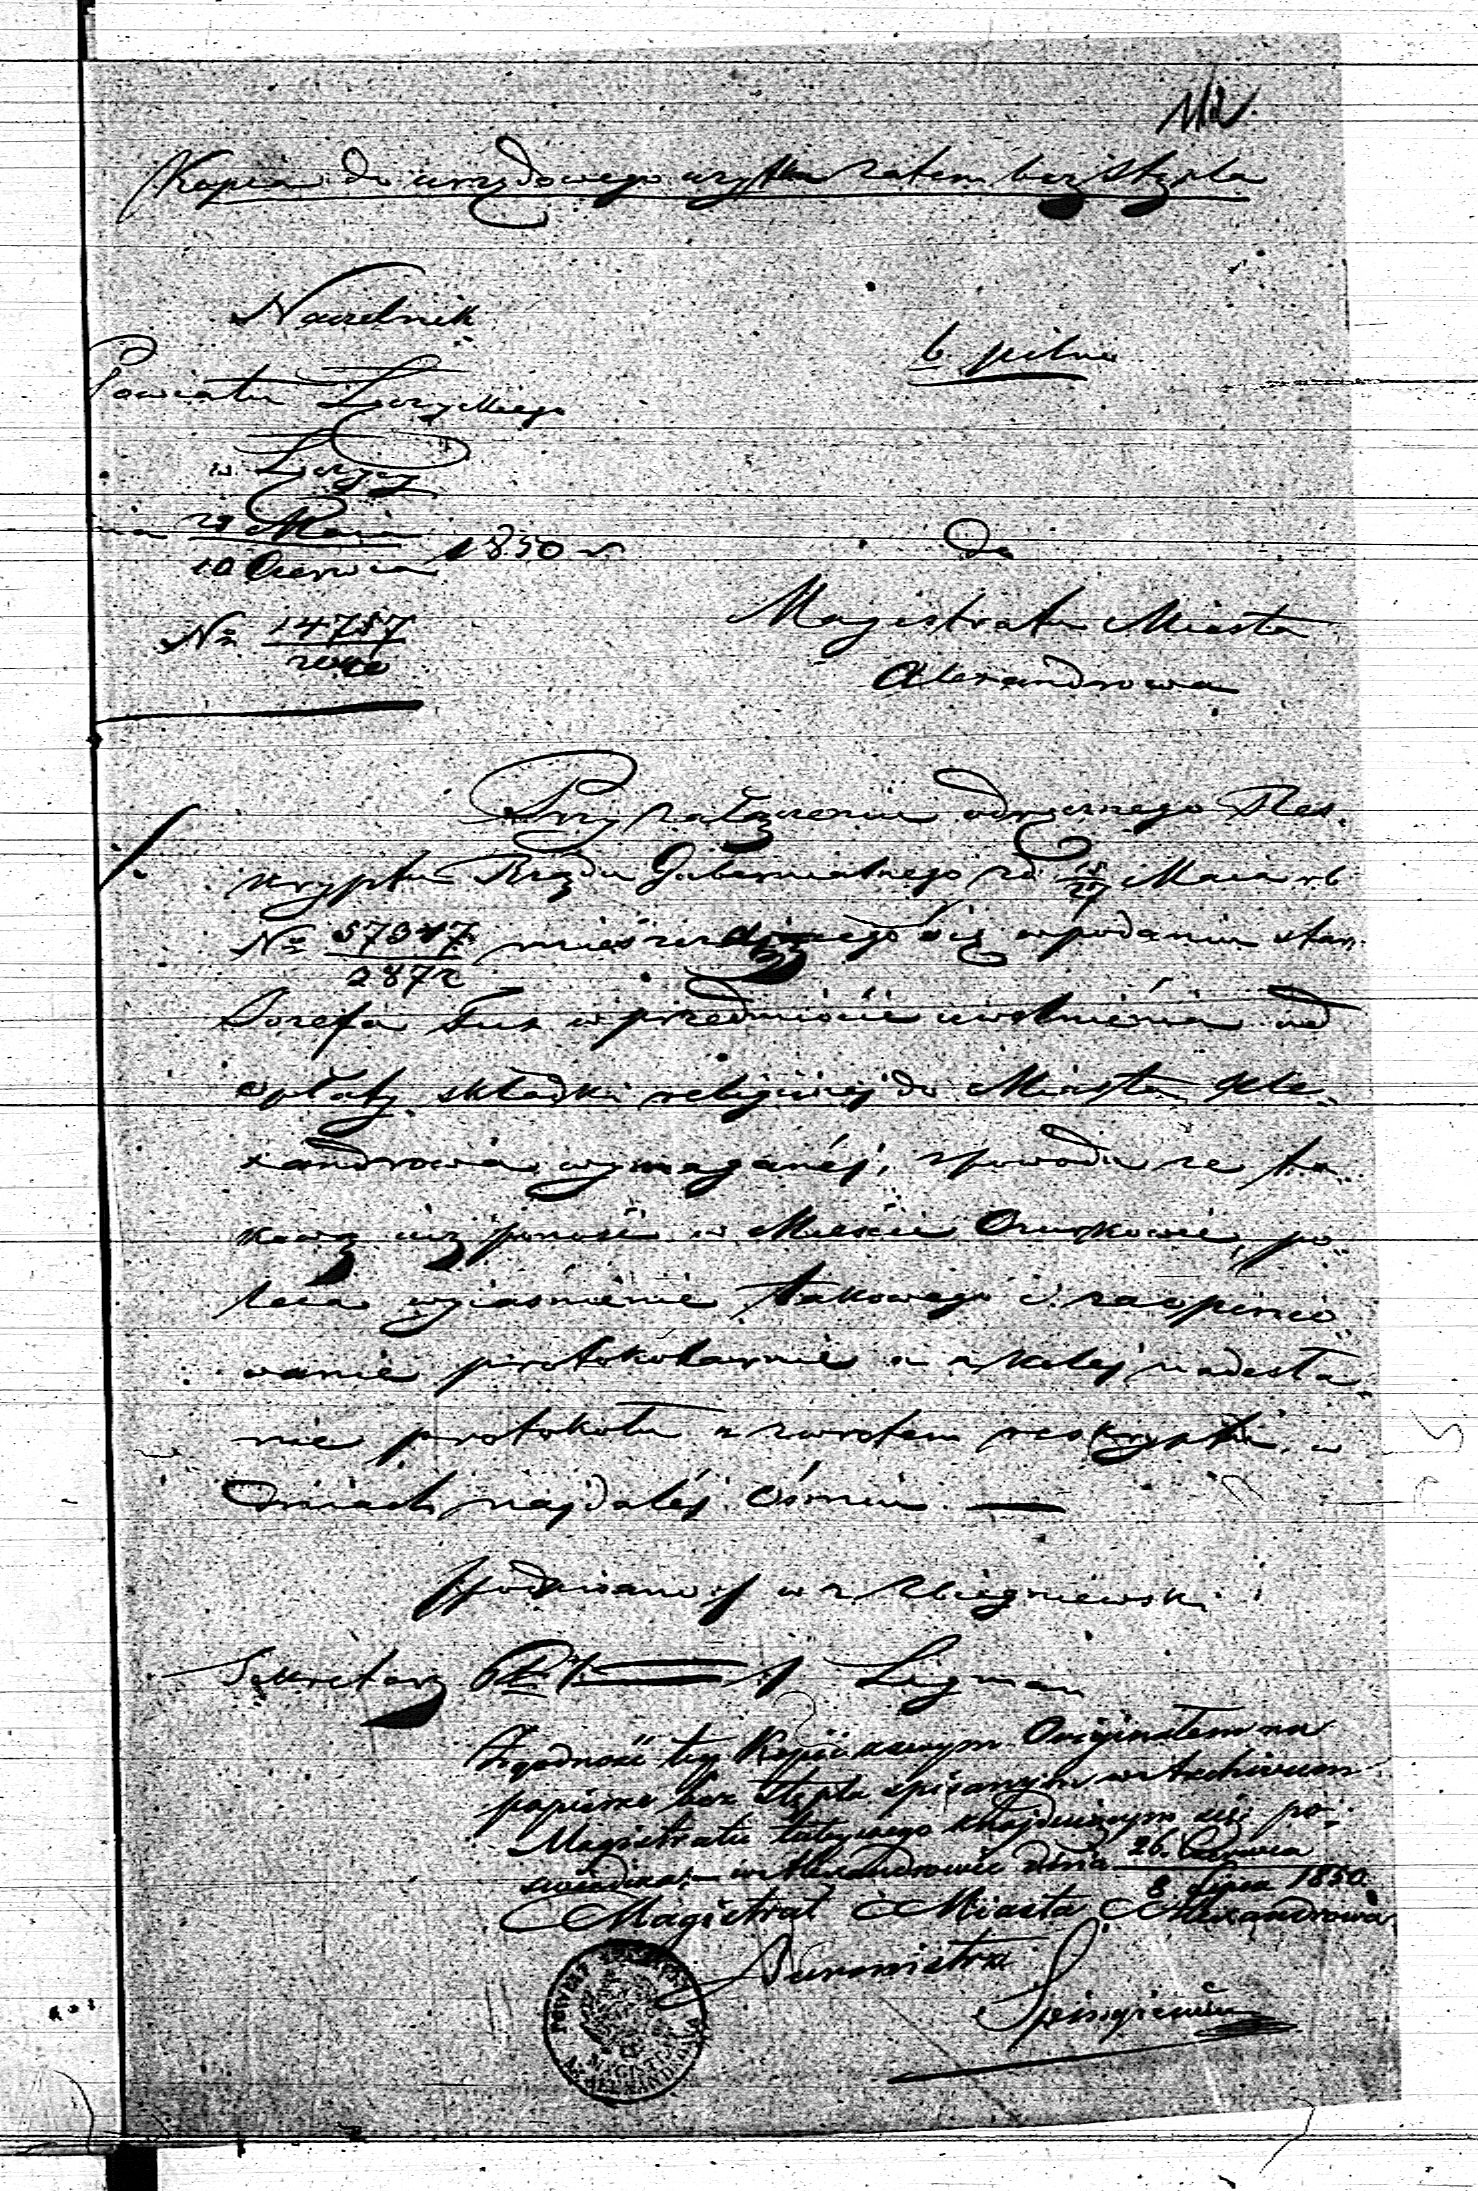 112.
Kopia do urzędowego użytku zatem bez stępla
Naczelnik
Powiatu Łęczyckiego
w Łęczycy
nia 29 Maja
10 Czerwca 1850 r
No 14757
b. pilno
do
Magistratu Miasta
Alexandrowa
Przy załączeniu odręcznego Res-
kryptu Rządu Gubernialnego zd 15/27 Maia rb
No 57347/2872 mieszczącego się w podaniu star.
Jozefa Tux w przedmiocie uwolnienia od
opłaty składki religijnej do Miasta Ale-
xandrowa wymaganéj, z powodu ze ta-
kową iuż ponosi w Mieście Ozorkowie, po-
leca wyiaśnienie takowego i zaopinio-
wanie protokólarnie a z kolej nadesła-
nie protokołu z zwrotem reskryptu, w
dniach najdaléj ośmiu. —
/podpisano/ w z Zbigniewski
Sekretarz / Ligman
Zgodność tej Kopii z samym Originałem na
papierze bez Stępla spisanym w Archiwum
Magistratu tutejszego znajdującym się po-
swiadcza. w Alexandrowie dnia 26. Czerwca
8 Lipca 1850.
Magistrat Miasta Alexandrowa
Burmistrz